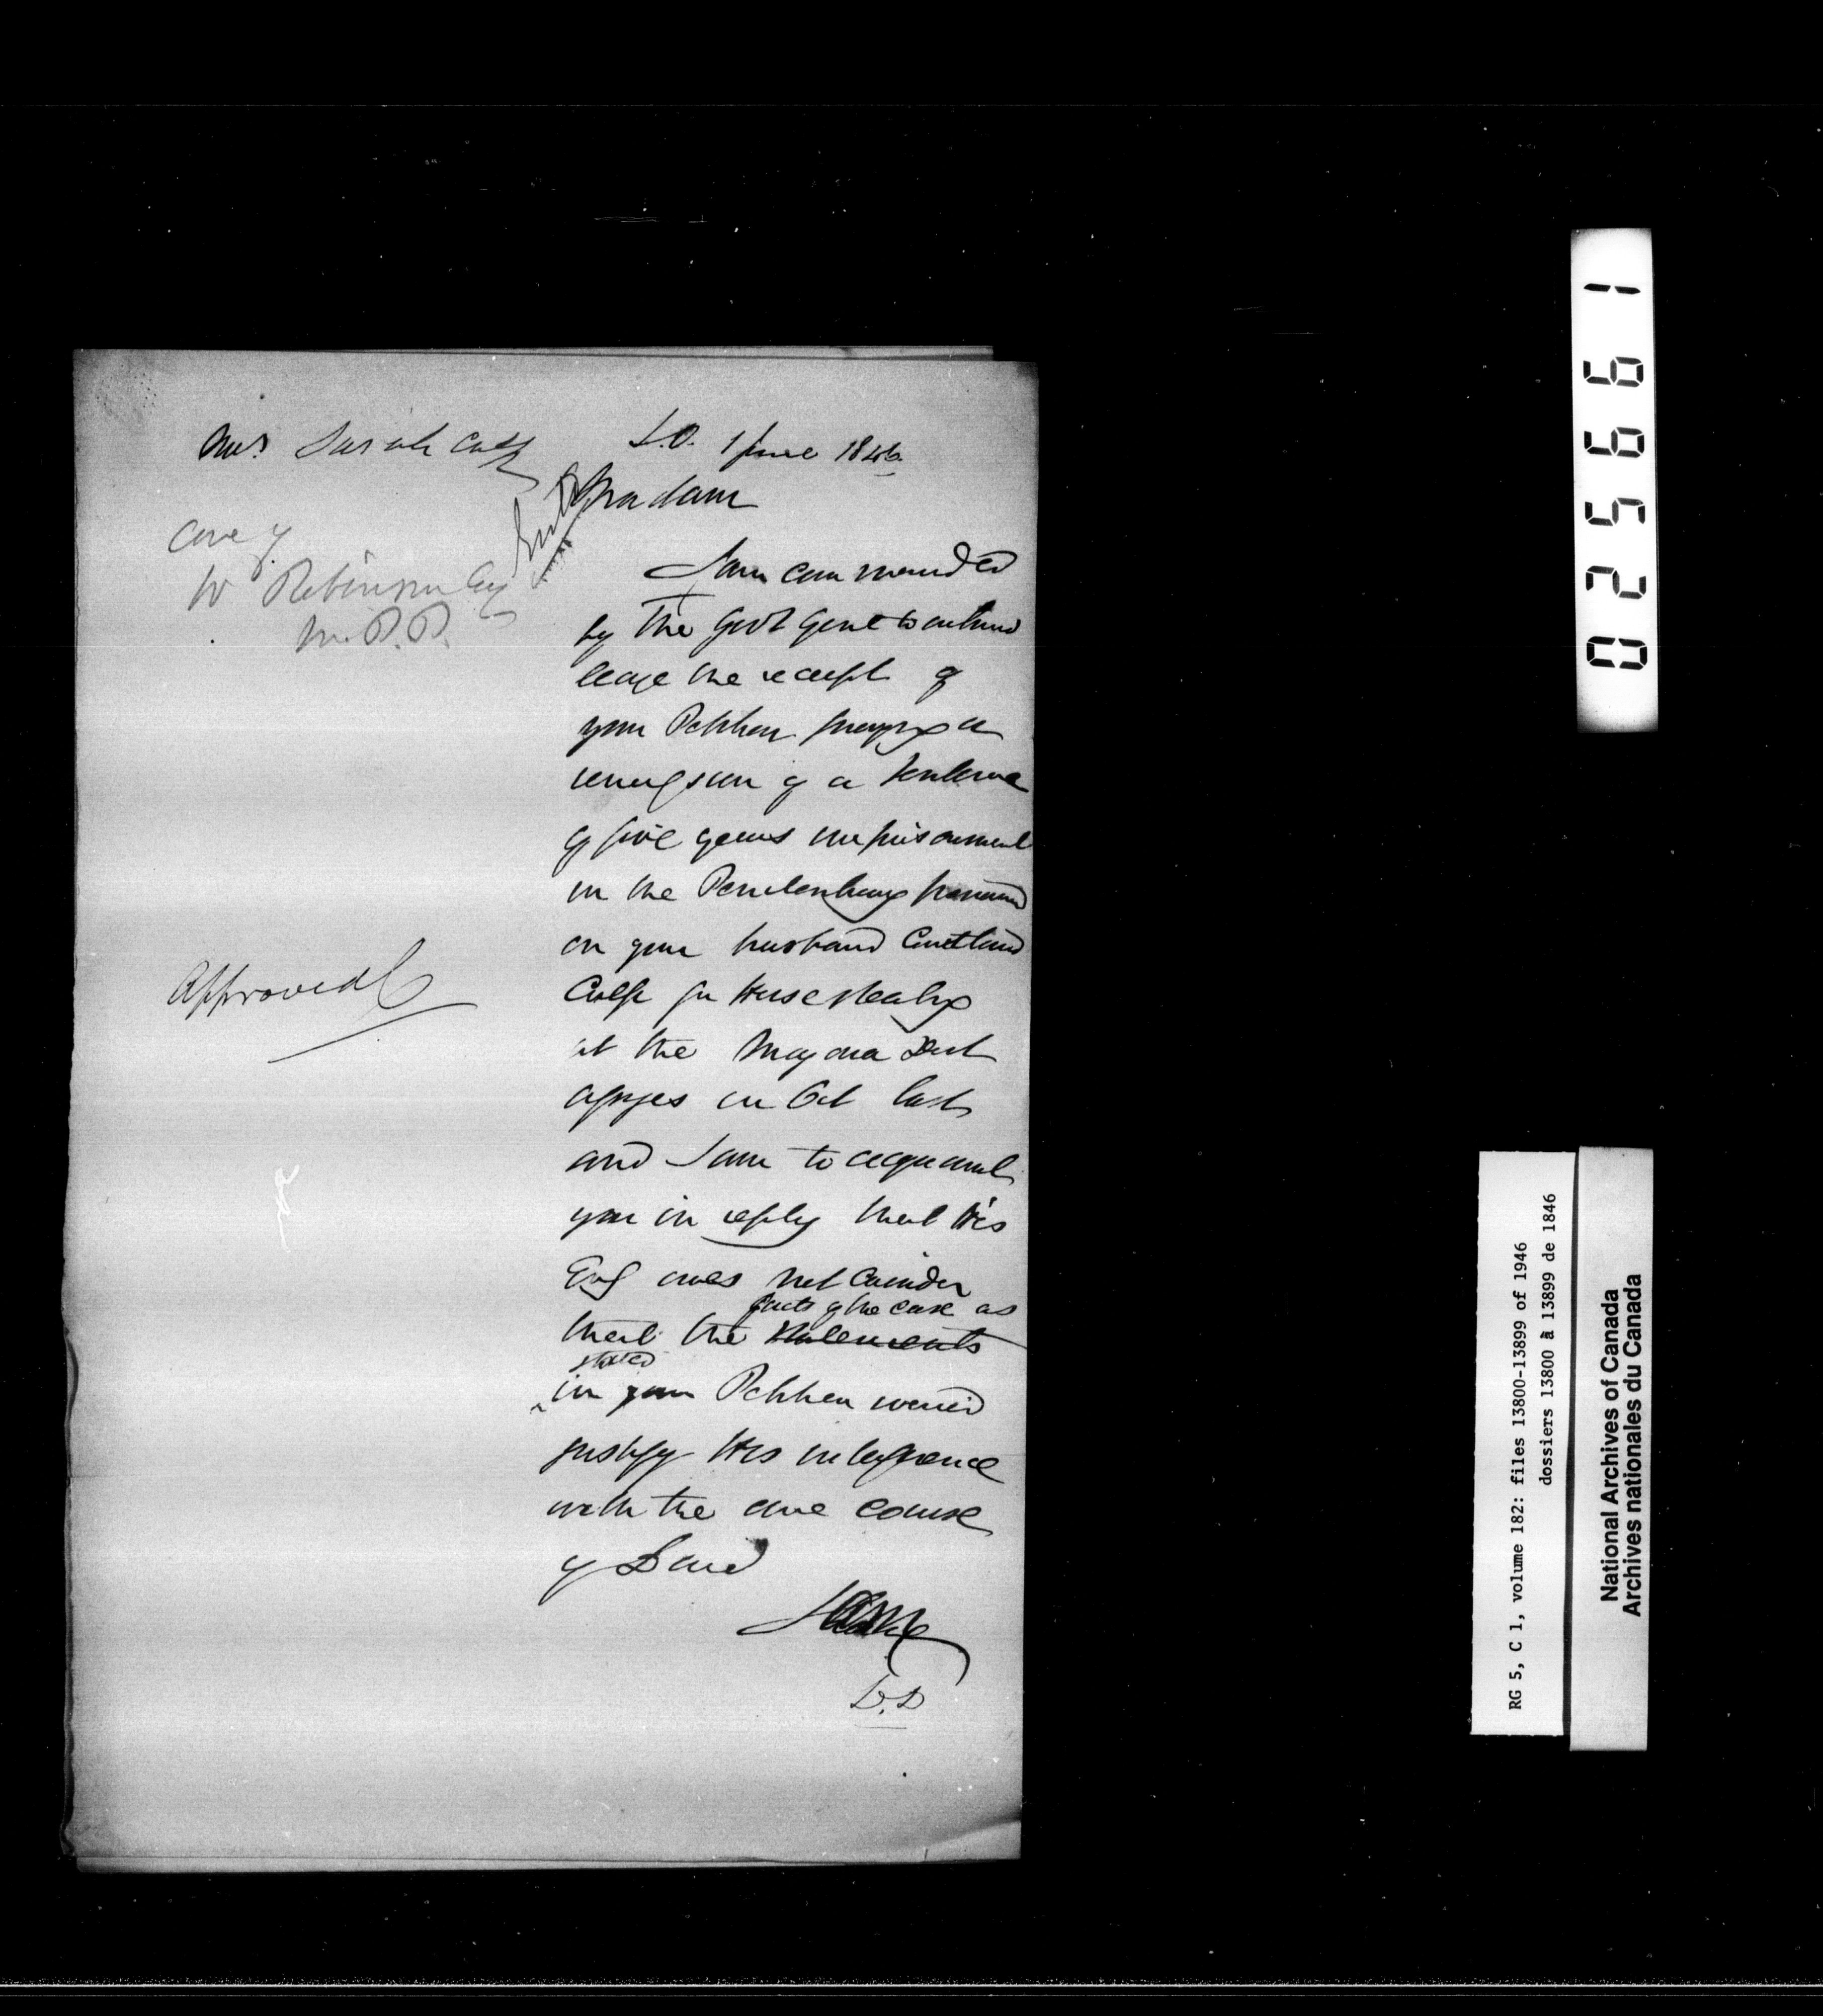 Mrs Sarah Culp
care of
W Robinson Esq
M.P.P.
Approved
S.O. 1 June 1846
Madam
I am commanded
by the Govr Genl to acknow
lege the receipt of
your Petition praying a
remission of a sentence
of five years imprisonment
in the Penitentiary passed
on your husband Cortland
Culp for Horse stealing
at the Niagara Dist
assizes in Oct last
and I am to acquaint
you in reply that His
Exy does not consider
facts of the case as
that the statements
stated
in your Petition would
justify His interference
with the due course
of Law
I have
D.D
025661
RG 5, C 1, volume 182: files 13800-13899 of 1946
dossiers 13800 à 13899 de 1846
National Archives of Canada
Archives nationales du Canada